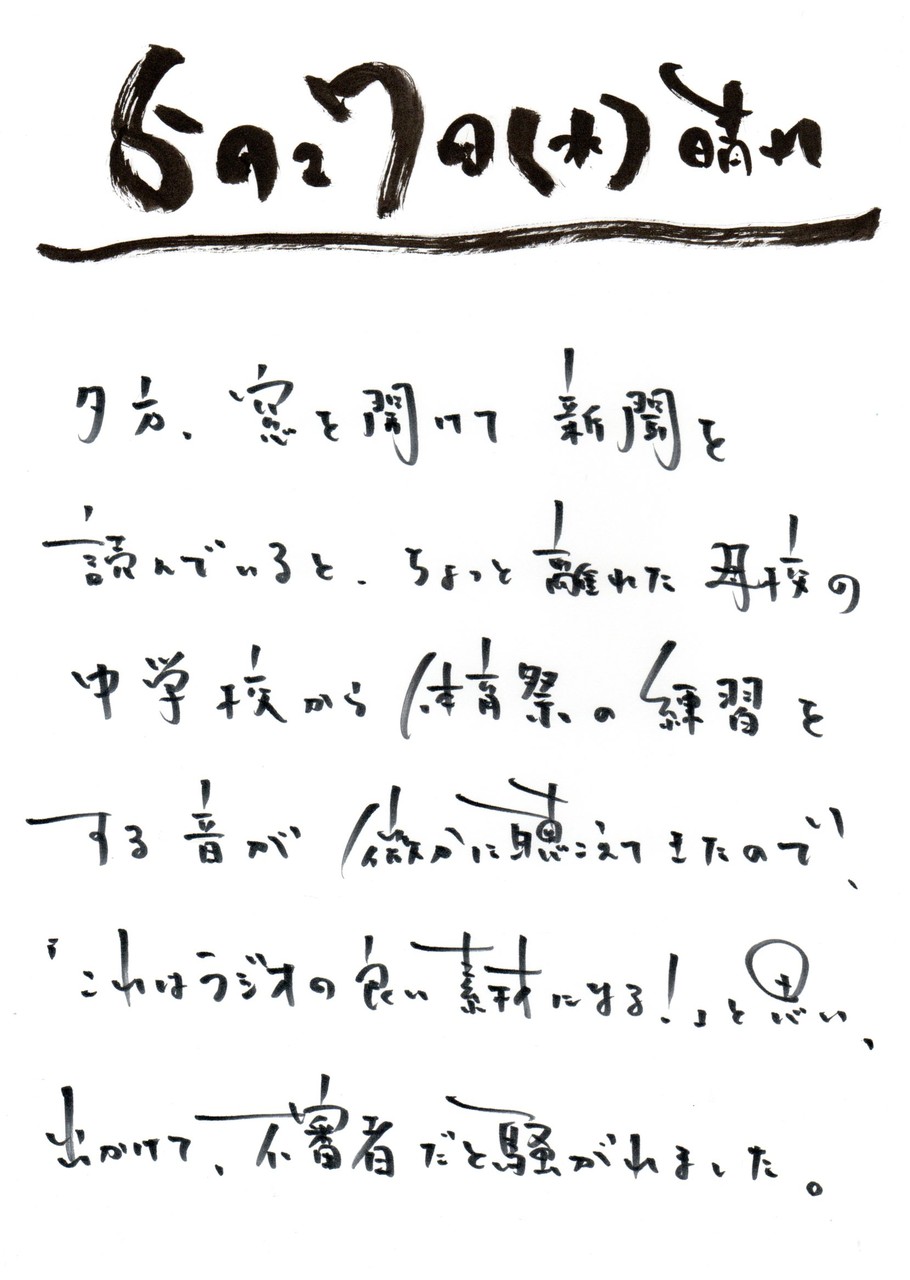 6月27日(水)晴れ
夕方、窓を開けて新聞を
読んでいると、ちょっと離れた母校の
中学校から体育祭の練習を
する音が微かに聴こえてきたので、
「これはラジオの良い素材になる!」と思い、
出かけて、不審者だと騒がれました。